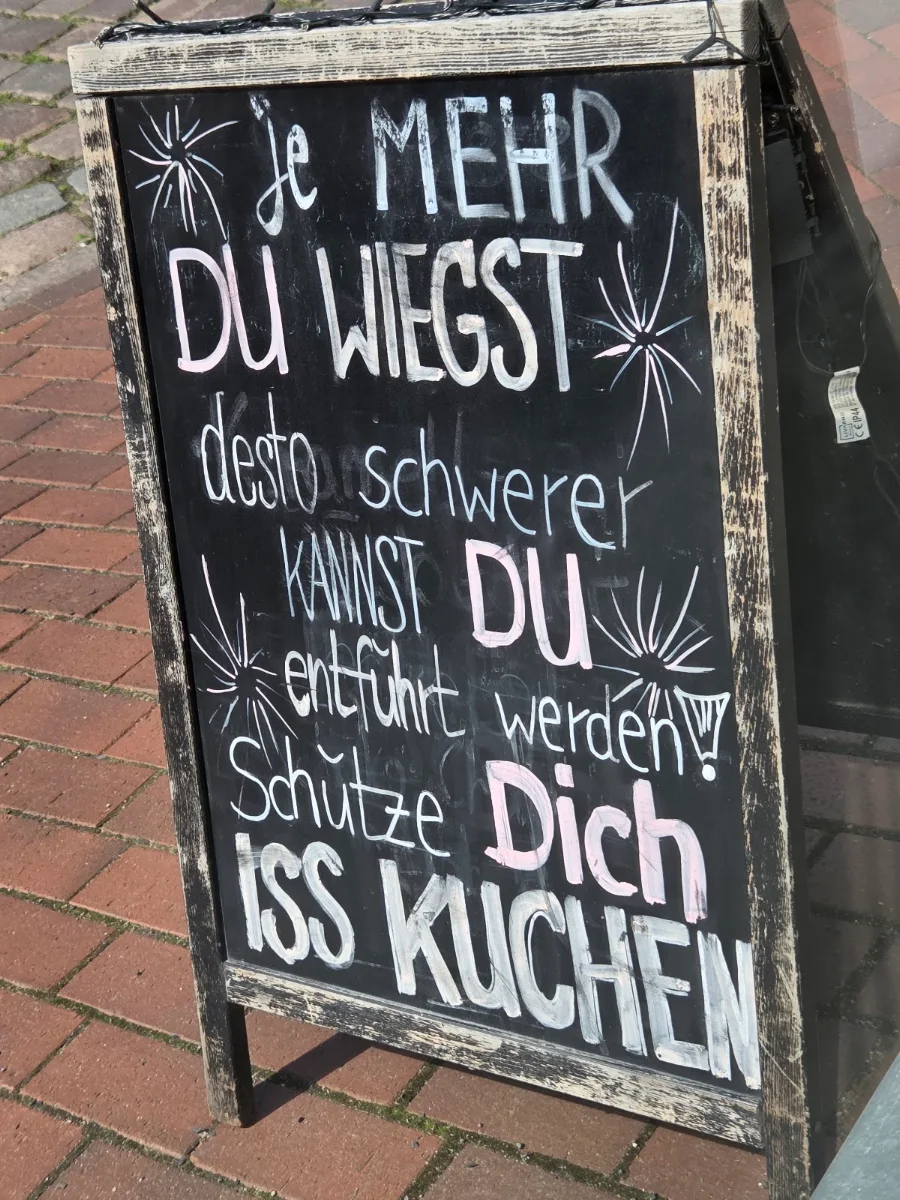 je MEHR
DU WIEGST
desto schwerer
KANNST DU
entführt werden!
Schütze Dich
ISS KUCHEN